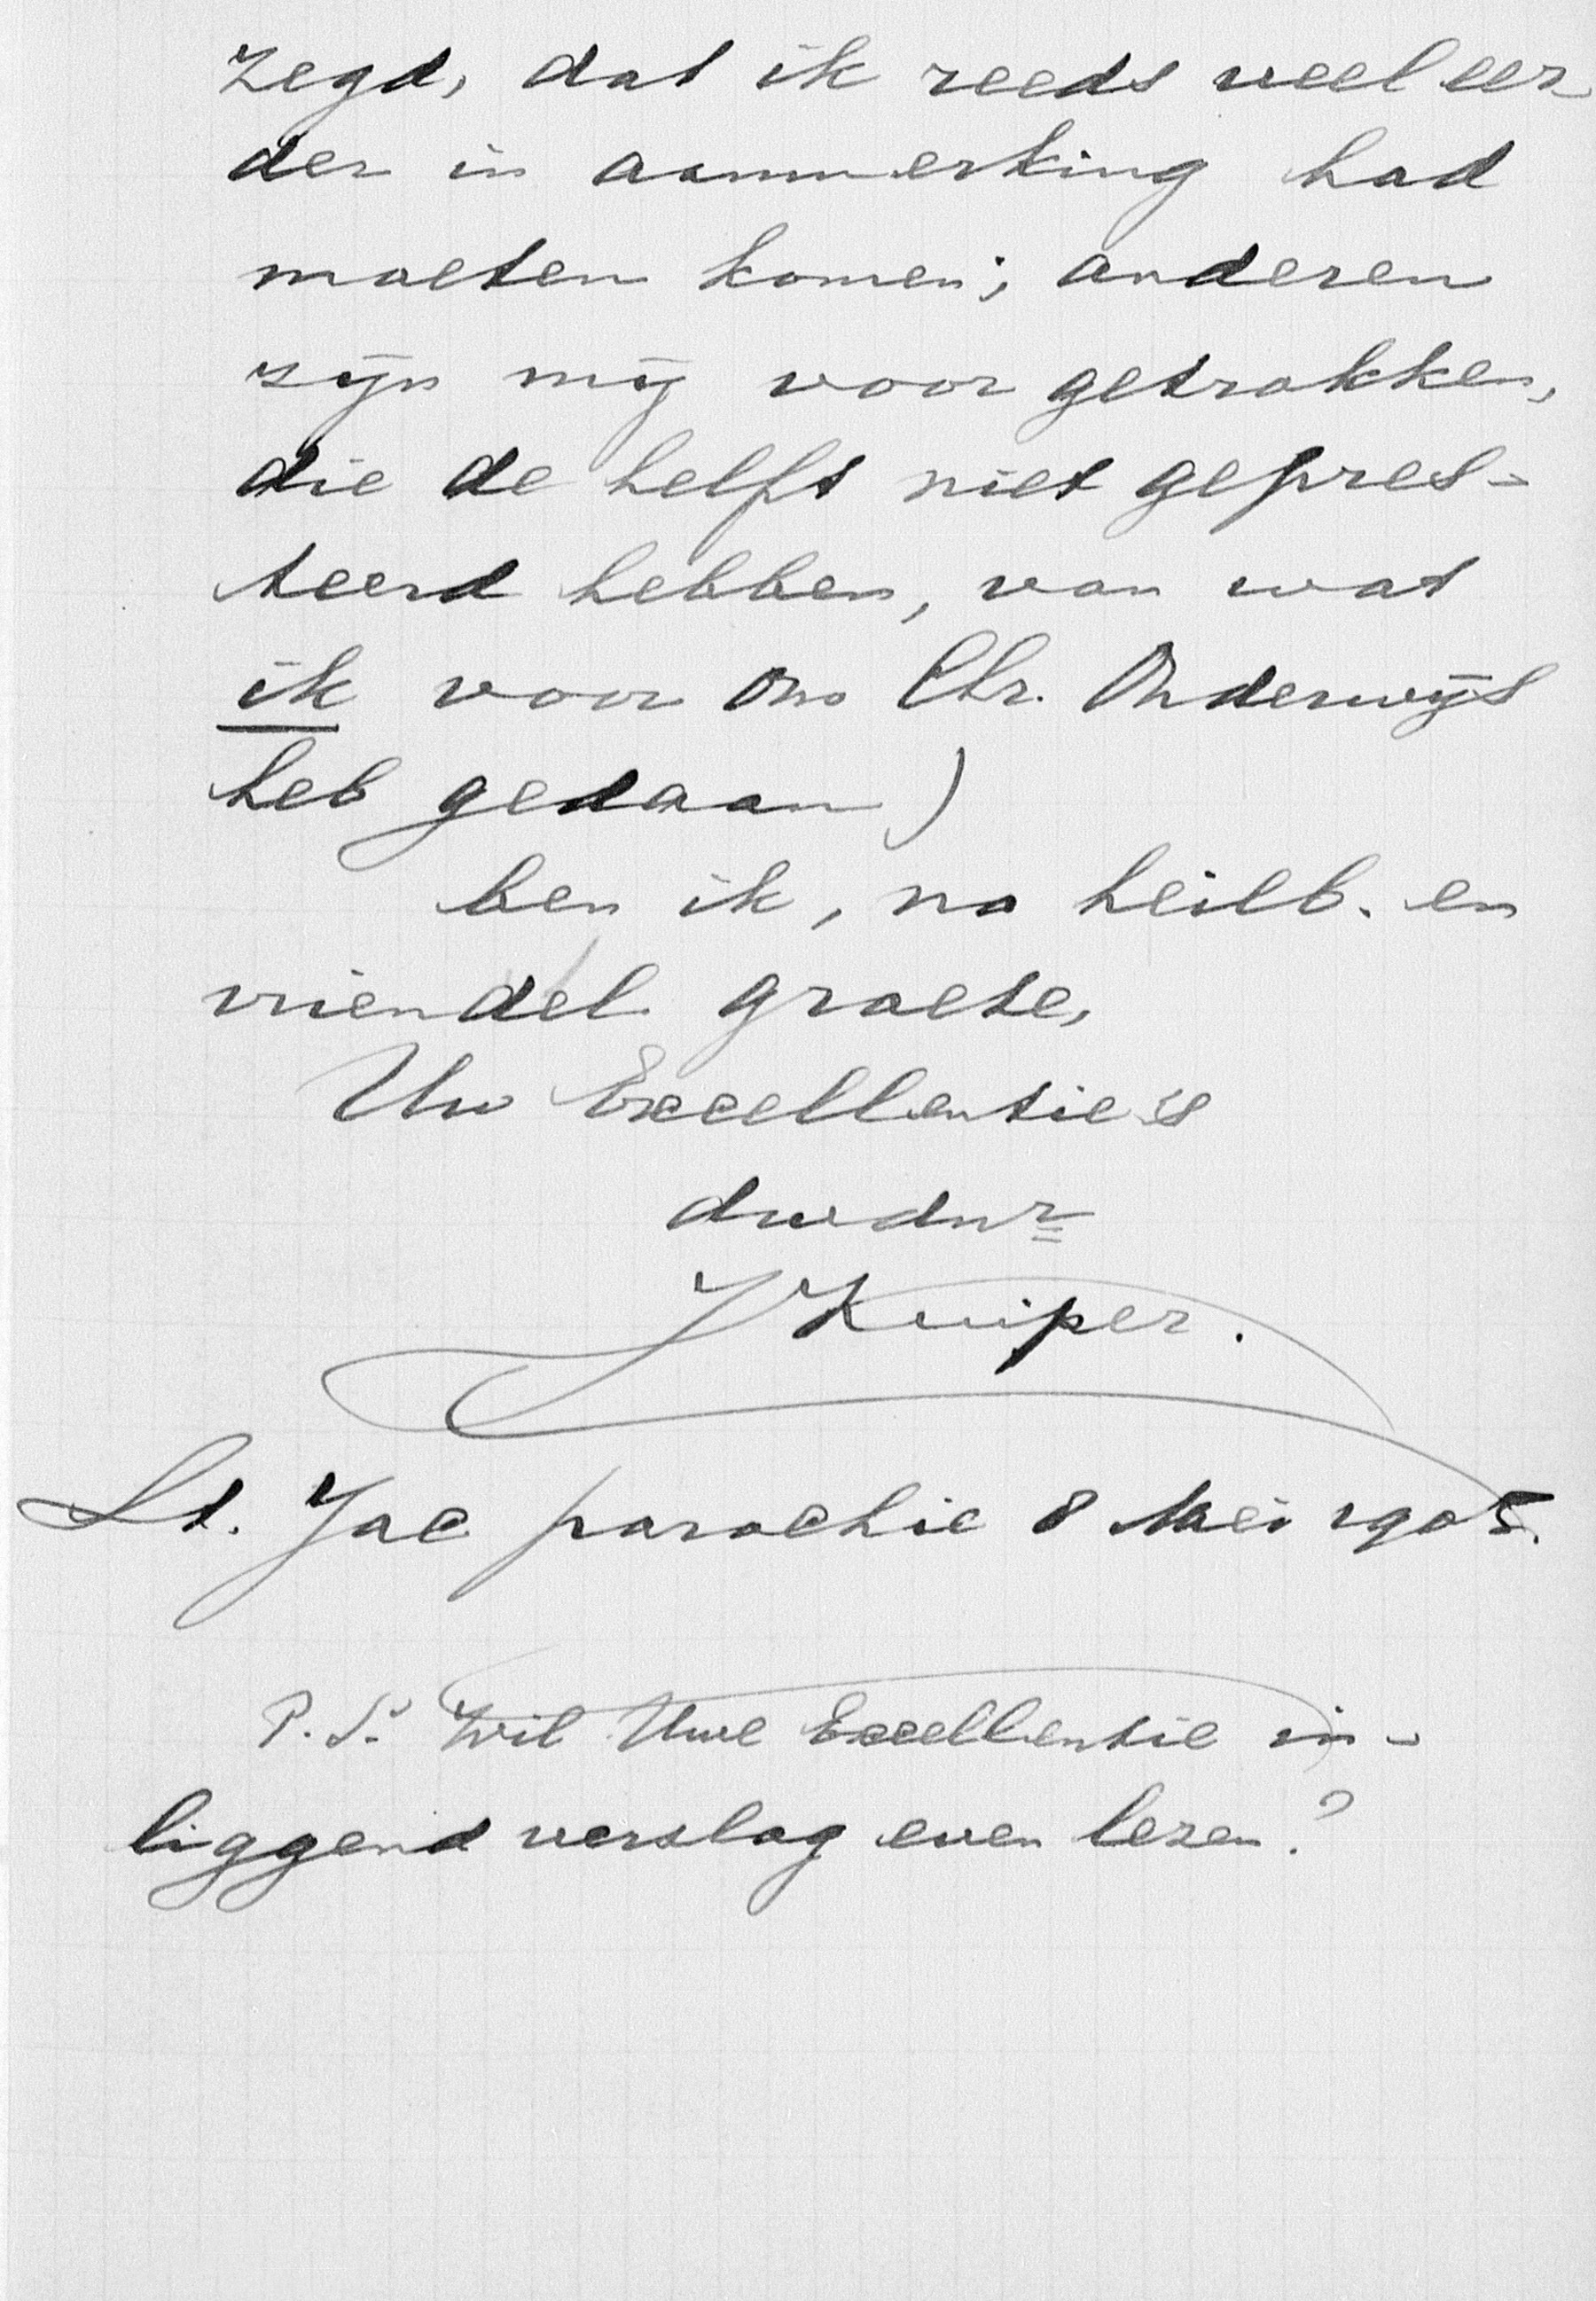 zegd, dat ik reeds veel eer
der in aanmerking had
moeten komen; anderen
zijn mij voor getrokken,
die de helft niet gepres-
teerd hebben, van wat
ik voor ons Chr. Onderwijs
heb gedaan)
ben ik, na heilb. en
vriendel. groete,
Uw Excellentie's
dwdnr
J Kuiper.
St. Jac parochie 8 Mei 1905.
P.S. Wil Uwe Excellentie in-
liggend verslag even lezen?